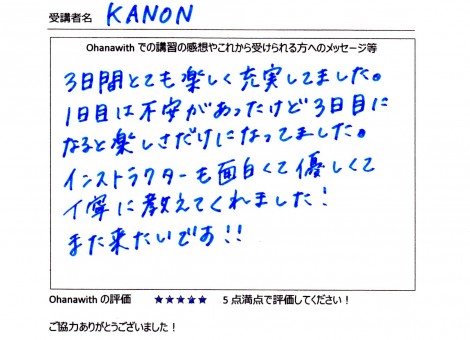 受講者名 KANON
Ohanawith での講習の感想やこれから受けられる方へのメッセージ等
3日間とても楽しく充実してました。
1日目は不安があったけど3日目に
なると楽しさだけになってました。
インストラクターも面白くて優しくて
丁寧に教えてくれました!
また来たいです!!
Ohanawith の評価 ★★★★★ 5 点満点で評価してください!
ご協力ありがとうございました!